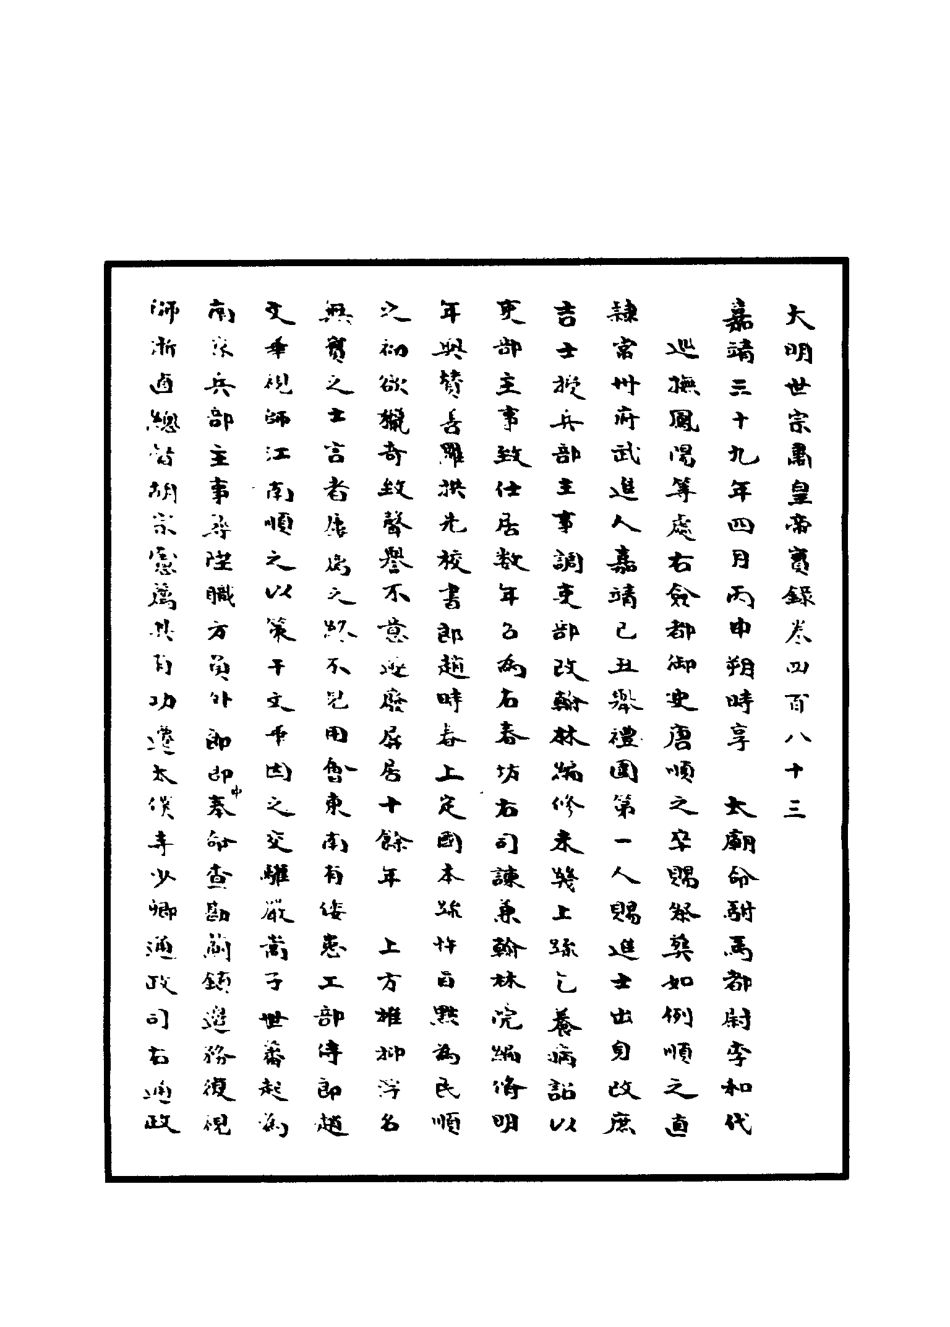 大明世宗肅皇帝實錄卷四百八十三
嘉靖三十九年四月丙申朔時享 太廟命駙馬都尉李和代
巡撫鳳陽等處右僉都御史唐順之卒賜祭葬如例順之直
隸常州府武進人嘉靖己丑舉禮闈第一人賜進士出身改庶
吉士授兵部主事調吏部改翰林編修未幾上疏乞養病詔以
吏部主事致仕居数年召為右春坊右司諫兼翰林院編修明
年與贊善羅洪先校書郎趙時春上定國本疏忤旨黜為民順
之初欲獵奇致聲譽不意遂廢屏居十餘年 上方摧抑浮名
無實之士言者屢為之終不見用會東南有倭患工部侍郎趙
文華視師江南順之以策干文華因之交驩嚴嵩子世蕃起為
南京兵部主事尋陞職方員外郎郎中奉命查勘薊鎮邊務復視
師浙直總督胡宗憲薦其有功遷太僕寺少卿通政司右通政